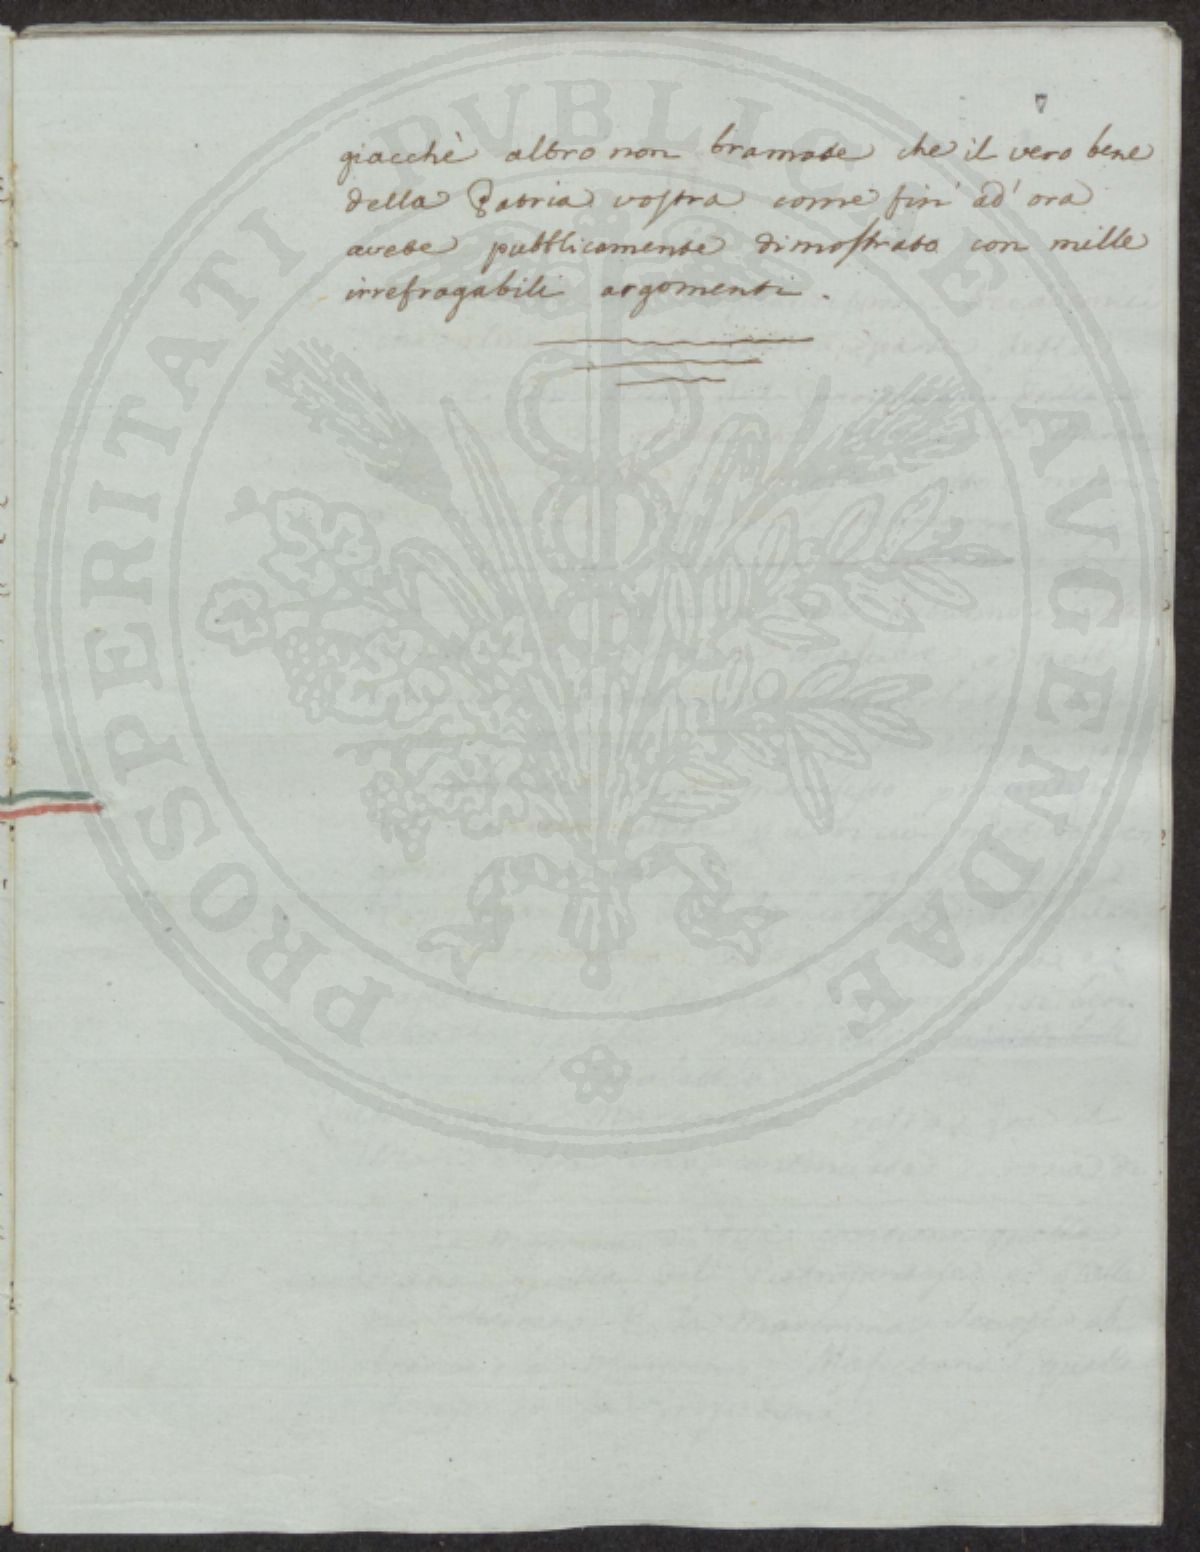 7
giacchè altro non bramate che il vero bene
della Patria vostra come fin' ad' ora
avete pubblicamente dimostrato con mille
irrefragabili argomenti.
PROSPERITATI PUBLICAE AUGENDAE